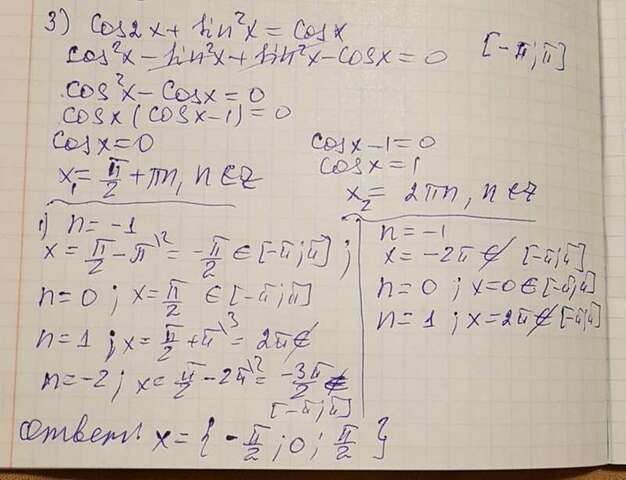 3) cos2x + sin²x = cosx
cos²x - sin²x + sin²x - cosx = 0 [-π; π]
cos²x - cosx = 0
cosx (cosx - 1) = 0
cosx = 0
x₁ = π/2 + πn, n ∈ Z
cosx - 1 = 0
cosx = 1
x₂ = 2πn, n ∈ Z
1) n = -1
x = π/2 - π\² = -π/2 ∈ [-π; π] ;
n = 0 ; x = π/2 ∈ [-π; π]
n = 1 ; x = π/2 + π\³ = 2π ∉
n = -2 ; x = π/2 - 2π\² = -3π/2 ∉
[-π; π]
n = -1
x = -2π ∉ [-π; π]
n = 0 ; x = 0 ∈ [-π; π]
n = 1 ; x = 2π ∉ [-π; π]
Ответ: x = { -π/2 ; 0 ; π/2 }